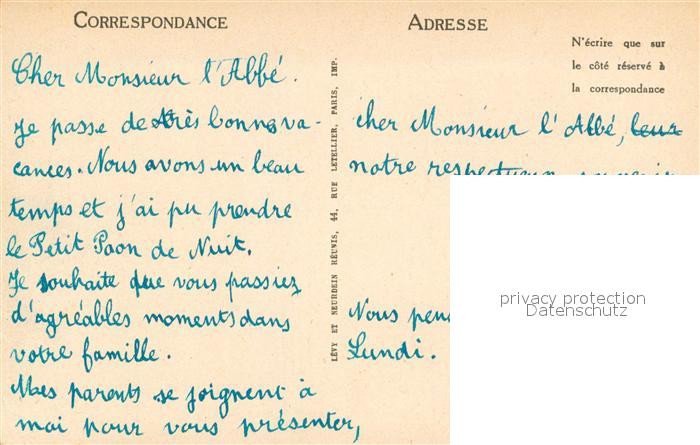 CORRESPONDANCE
Cher Monsieur l'Abbé.
Je passe de très bonnes va-
cances. Nous avons un beau
temps et j'ai pu prendre
le Petit Paon de Nuit.
Je souhaite que vous passiez
d'agréables moments dans
votre famille.
Mes parents se joignent à
moi pour vous présenter,
LÉVY ET NEURDEIN RÉUNIS, 44, RUE LETELLIER, PARIS, IMP.
ADRESSE
N'écrire que sur
le côté réservé à
la correspondance
cher Monsieur l'Abbé, leur
notre respectueux souvenir
Nous
Lundi.
privacy protection
Datenschutz